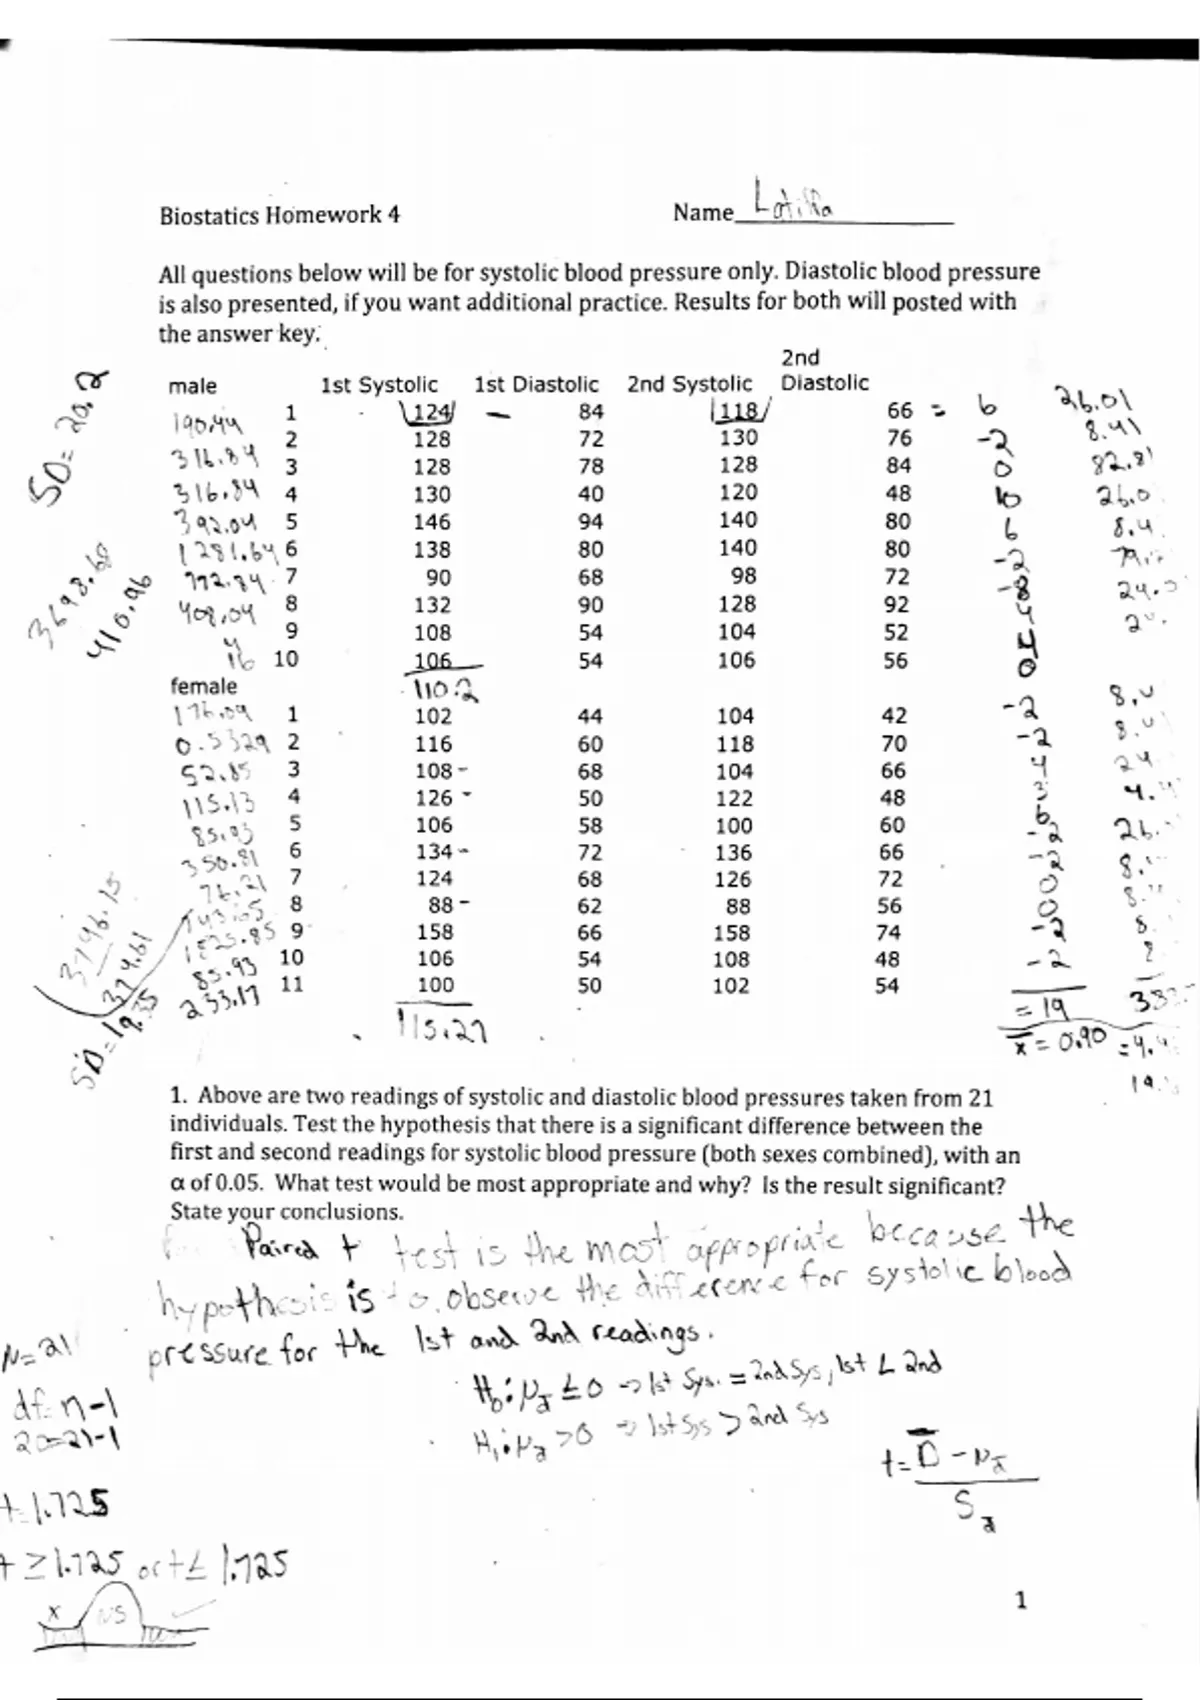 Biostatics Homework 4 Name
All questions below will be for systolic blood pressure only. Diastolic blood pressure
is also presented, if you want additional practice. Results for both will posted with
the answer key.
2nd
male 1st Systolic 1st Diastolic 2nd Systolic Diastolic
190.44 1 124 — 84 118 66 = 6 26.01
316.84 2 128 72 130 76 -2 8.41
316.84 3 128 78 128 84 0 82.81
392.04 4 130 40 120 48 10 26.0
1281.64 5 146 94 140 80 6 8.4
772.84 6 138 80 140 80 -2
408.04 7 90 68 98 72 -8
4 8 132 90 128 92 4
16 9 108 54 104 52 4
10 106 54 106 56 0
female 110.2
176.09 1 102 44 104 42 -2
0.5329 2 116 60 118 70 -2
52.85 3 108 - 68 104 66 4
115.13 4 126 - 50 122 48
85.93 5 106 58 100 60 6
350.81 6 134 - 72 136 66 -2
76.21 7 124 68 126 72 -2
743.05 8 88 - 62 88 56 0
1825.85 9 158 66 158 74 0
85.93 10 106 54 108 48 -2
233.17 11 100 50 102 54 -2
115.27
= 19
x̄ = 0.90
SD = 20.2
3698.68
410.96
3796.15
374.61
SD = 19.35
1. Above are two readings of systolic and diastolic blood pressures taken from 21
individuals. Test the hypothesis that there is a significant difference between the
first and second readings for systolic blood pressure (both sexes combined), with an
α of 0.05. What test would be most appropriate and why? Is the result significant?
State your conclusions.
Paired t test is the most appropriate because the
hypothesis is to observe the difference for systolic blood
pressure for the 1st and 2nd readings.
N=21
df= n-1
20=21-1
H₀: μd ≤ 0 → 1st Sys. = 2nd Sys, 1st < 2nd
H₁: μd > 0 → 1st Sys > 2nd Sys
t = D̄ - μd
Sd
t=1.725
t ≥ 1.725 or t ≤ 1.725
x NS
1